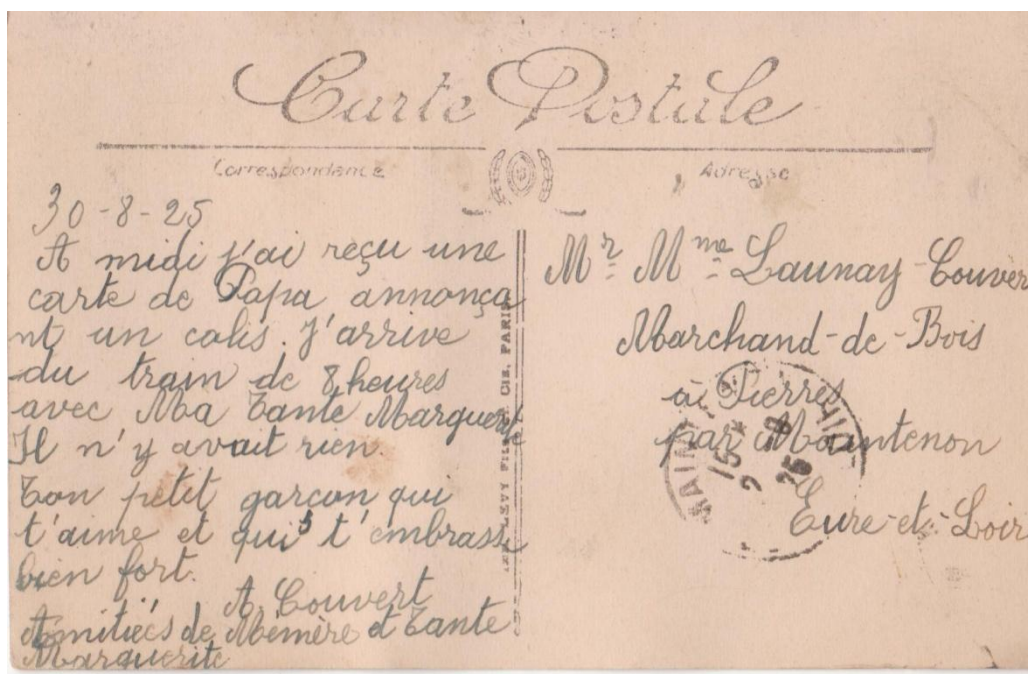 Carte Postale
Correspondance
Adresse
30-8-25
A midi j'ai reçu une
carte de Papa annonça
nt un colis. J'arrive
du train de 8 heures
avec Ma Tante Marguerit
Il n'y avait rien.
Ton petit garçon qui
t'aime et qui t'embrass
bien fort.
A. Couvert
Amitiés de Mémère et Tante
Marguerite
LEVY FILS & CIE, PARIS
Mr Mme Launay-Couver
Marchand-de-Bois
à Pierres
par Maintenon
Eure-et-Loir